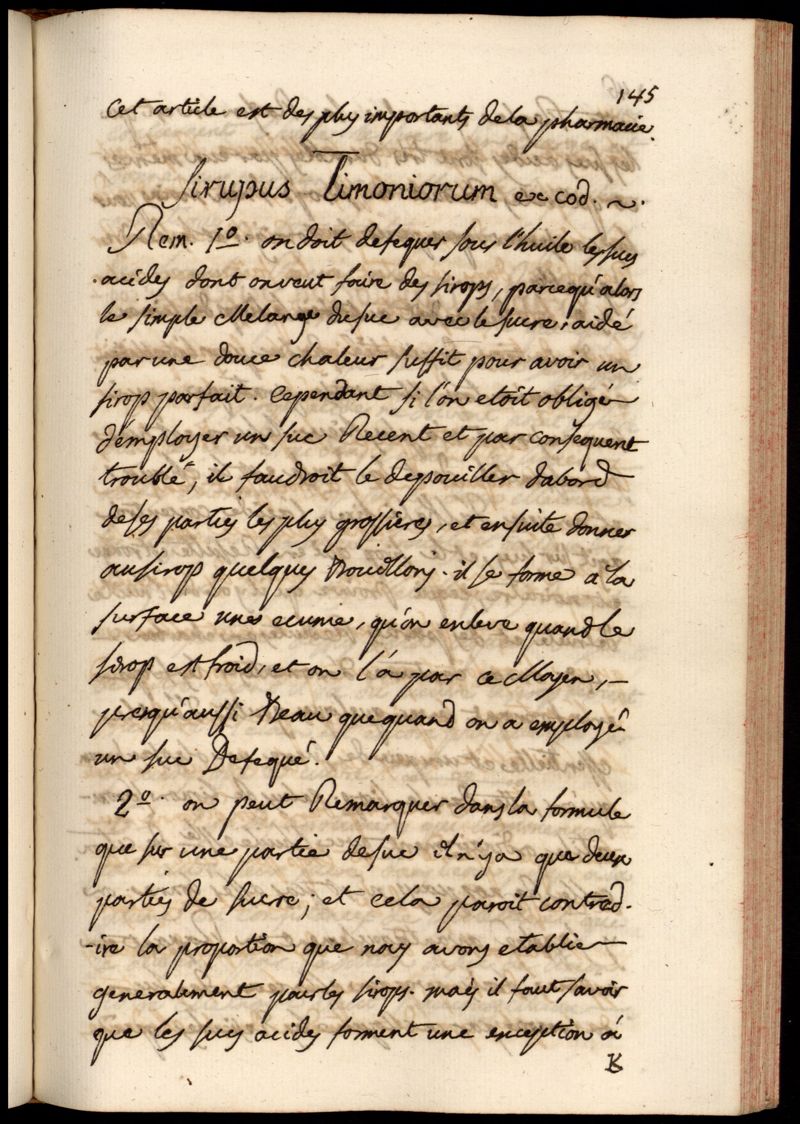 145
cet article est des plus importants de la pharmacie.
Sirupus Limoniorum ex cod. ~.
Rem. 1º. on doit defequer sous l'huile les sucs
acides dont on veut faire des sirops, parcequ'alors
le simple Melange du suc avec le sucre, aidé
par une douce chaleur suffit pour avoir un
sirop parfait. Cependant si l'on etoit obligé
d'employer un suc Recent et par consequent
troublé, il faudroit le depouiller dabord
de ses parties les plus grossieres, et ensuite donner
au sirop quelques Bouillons. il se forme a la
surface une ecume, qu'on enleve quand le
sirop est froid, et on l'a par ce Moyen,
presqu'aussi Beau que quand on a employé
un suc Defequé.
2º. on peut Remarquer dans la formule
que sur une partie de suc il n'ya que deux
parties de sucre; et cela paroit contred-
-ire la proportion que nous avons etablie
generalement pour les sirops. mais il faut savoir
que les sucs acides forment une exception a
K